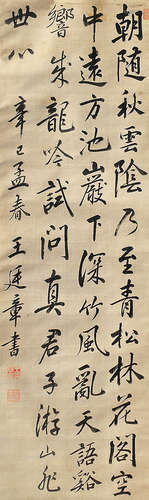 朝随秋雲陰乃至青松林花阁空
中遠方池巖下深竹風亂天語谿
響成龍吟試問真君子遊山非
世心
辛巳孟春 王廷章書